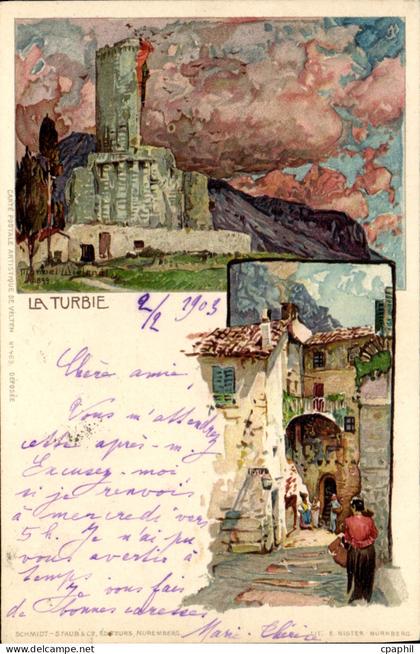 Manuel Wielandt
1899
LA TURBIE
2/2 1903
CARTE POSTALE ARTISTIQUE DE VELTEN Nº 463 DÉPOSÉE
Chère amie,
Vous m'attendrez
cette après-m.
Excusez-moi
si je renvois
à mercredi vers
5h. Je n'ai pu
vous avertir à
temps.
Je vous fais
de bonnes caresses
Marie-Thérèse
SCHMIDT-STAUB & Cº, ÉDITEURS, NUREMBERG.
LIT. E. NISTER NÜRNBERG.
www.delcampe.net
cpaphil